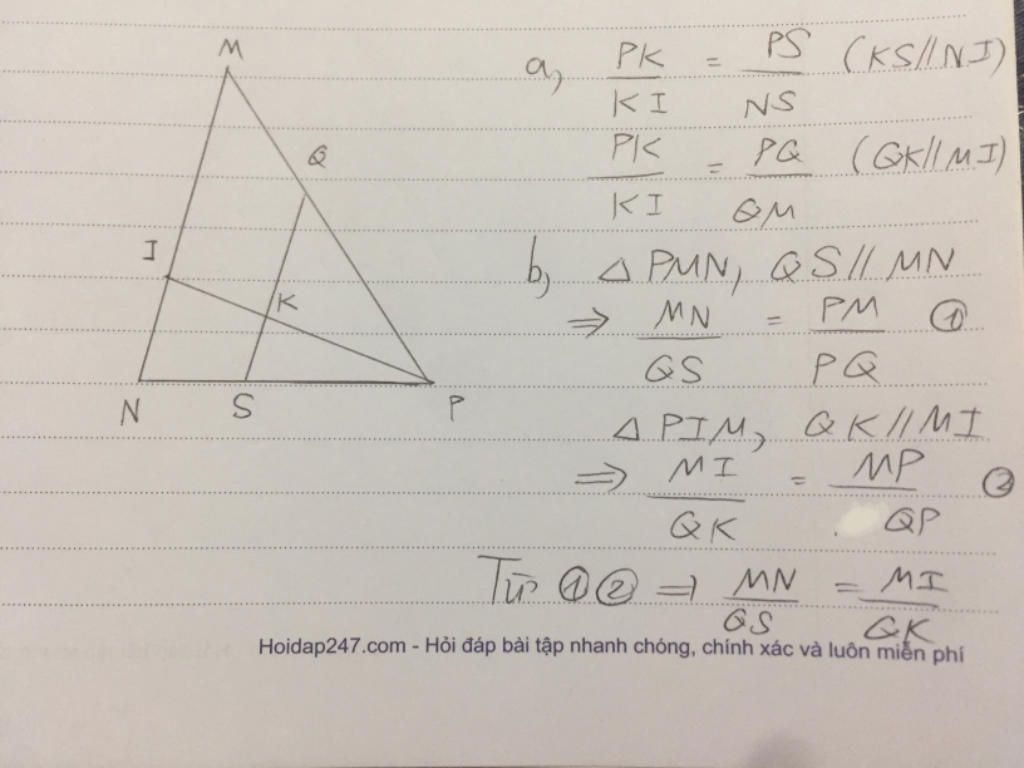 M
Q
I
K
N S P
a, PK/KI = PS/NS (KS//NI)
PK/KI = PQ/QM (QK//MI)
b, △ PMN, QS// MN
⇒ MN/QS = PM/PQ ①
△ PIM, QK//MI
⇒ MI/QK = MP/QP ②
Từ ① ② ⇒ MN/QS = MI/QK
Hoidap247.com - Hỏi đáp bài tập nhanh chóng, chính xác và luôn miễn phí